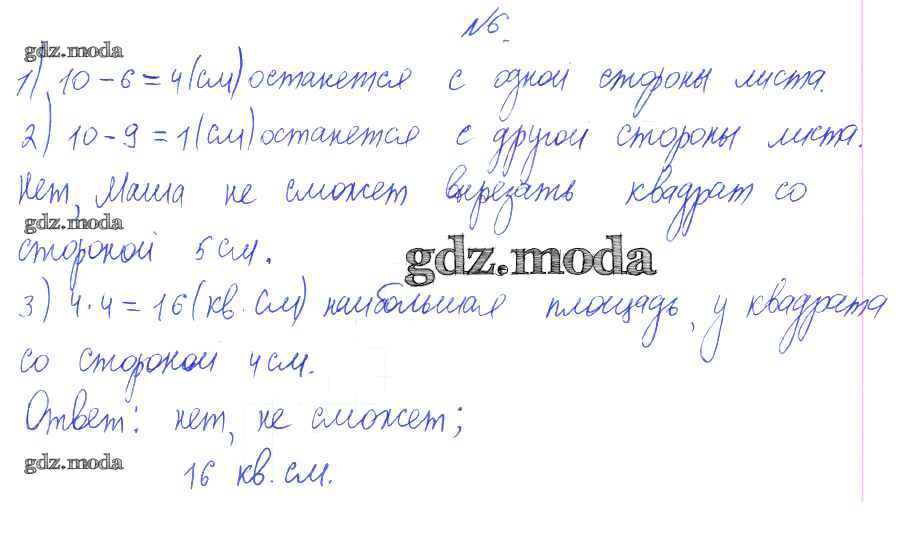 №6.
gdz.moda
1) 10 - 6 = 4 (см) останется с одной стороны листа.
2) 10 - 9 = 1 (см) останется с другой стороны листа.
Нет, Маша не сможет вырезать квадрат со
gdz.moda
стороной 5 см.
gdz.moda
3) 4 · 4 = 16 (кв. см) наибольшая площадь, у квадрата
со стороной 4 см.
Ответ: нет, не сможет;
gdz.moda
16 кв. см.